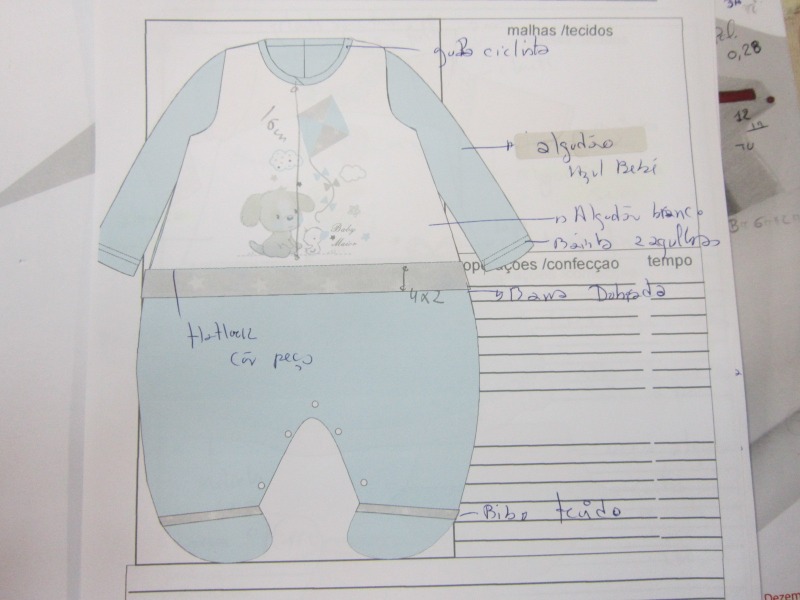 malhas /tecidos
gola ciclista
6cm
algodão
Azul Bebé
Algodão branco
Bainha 2 agulhas
operações /confecçao tempo
4x2
Barra Dobrada
flatlock
côr peça
Baby
tecido
pl.
0,28
12
Dezem